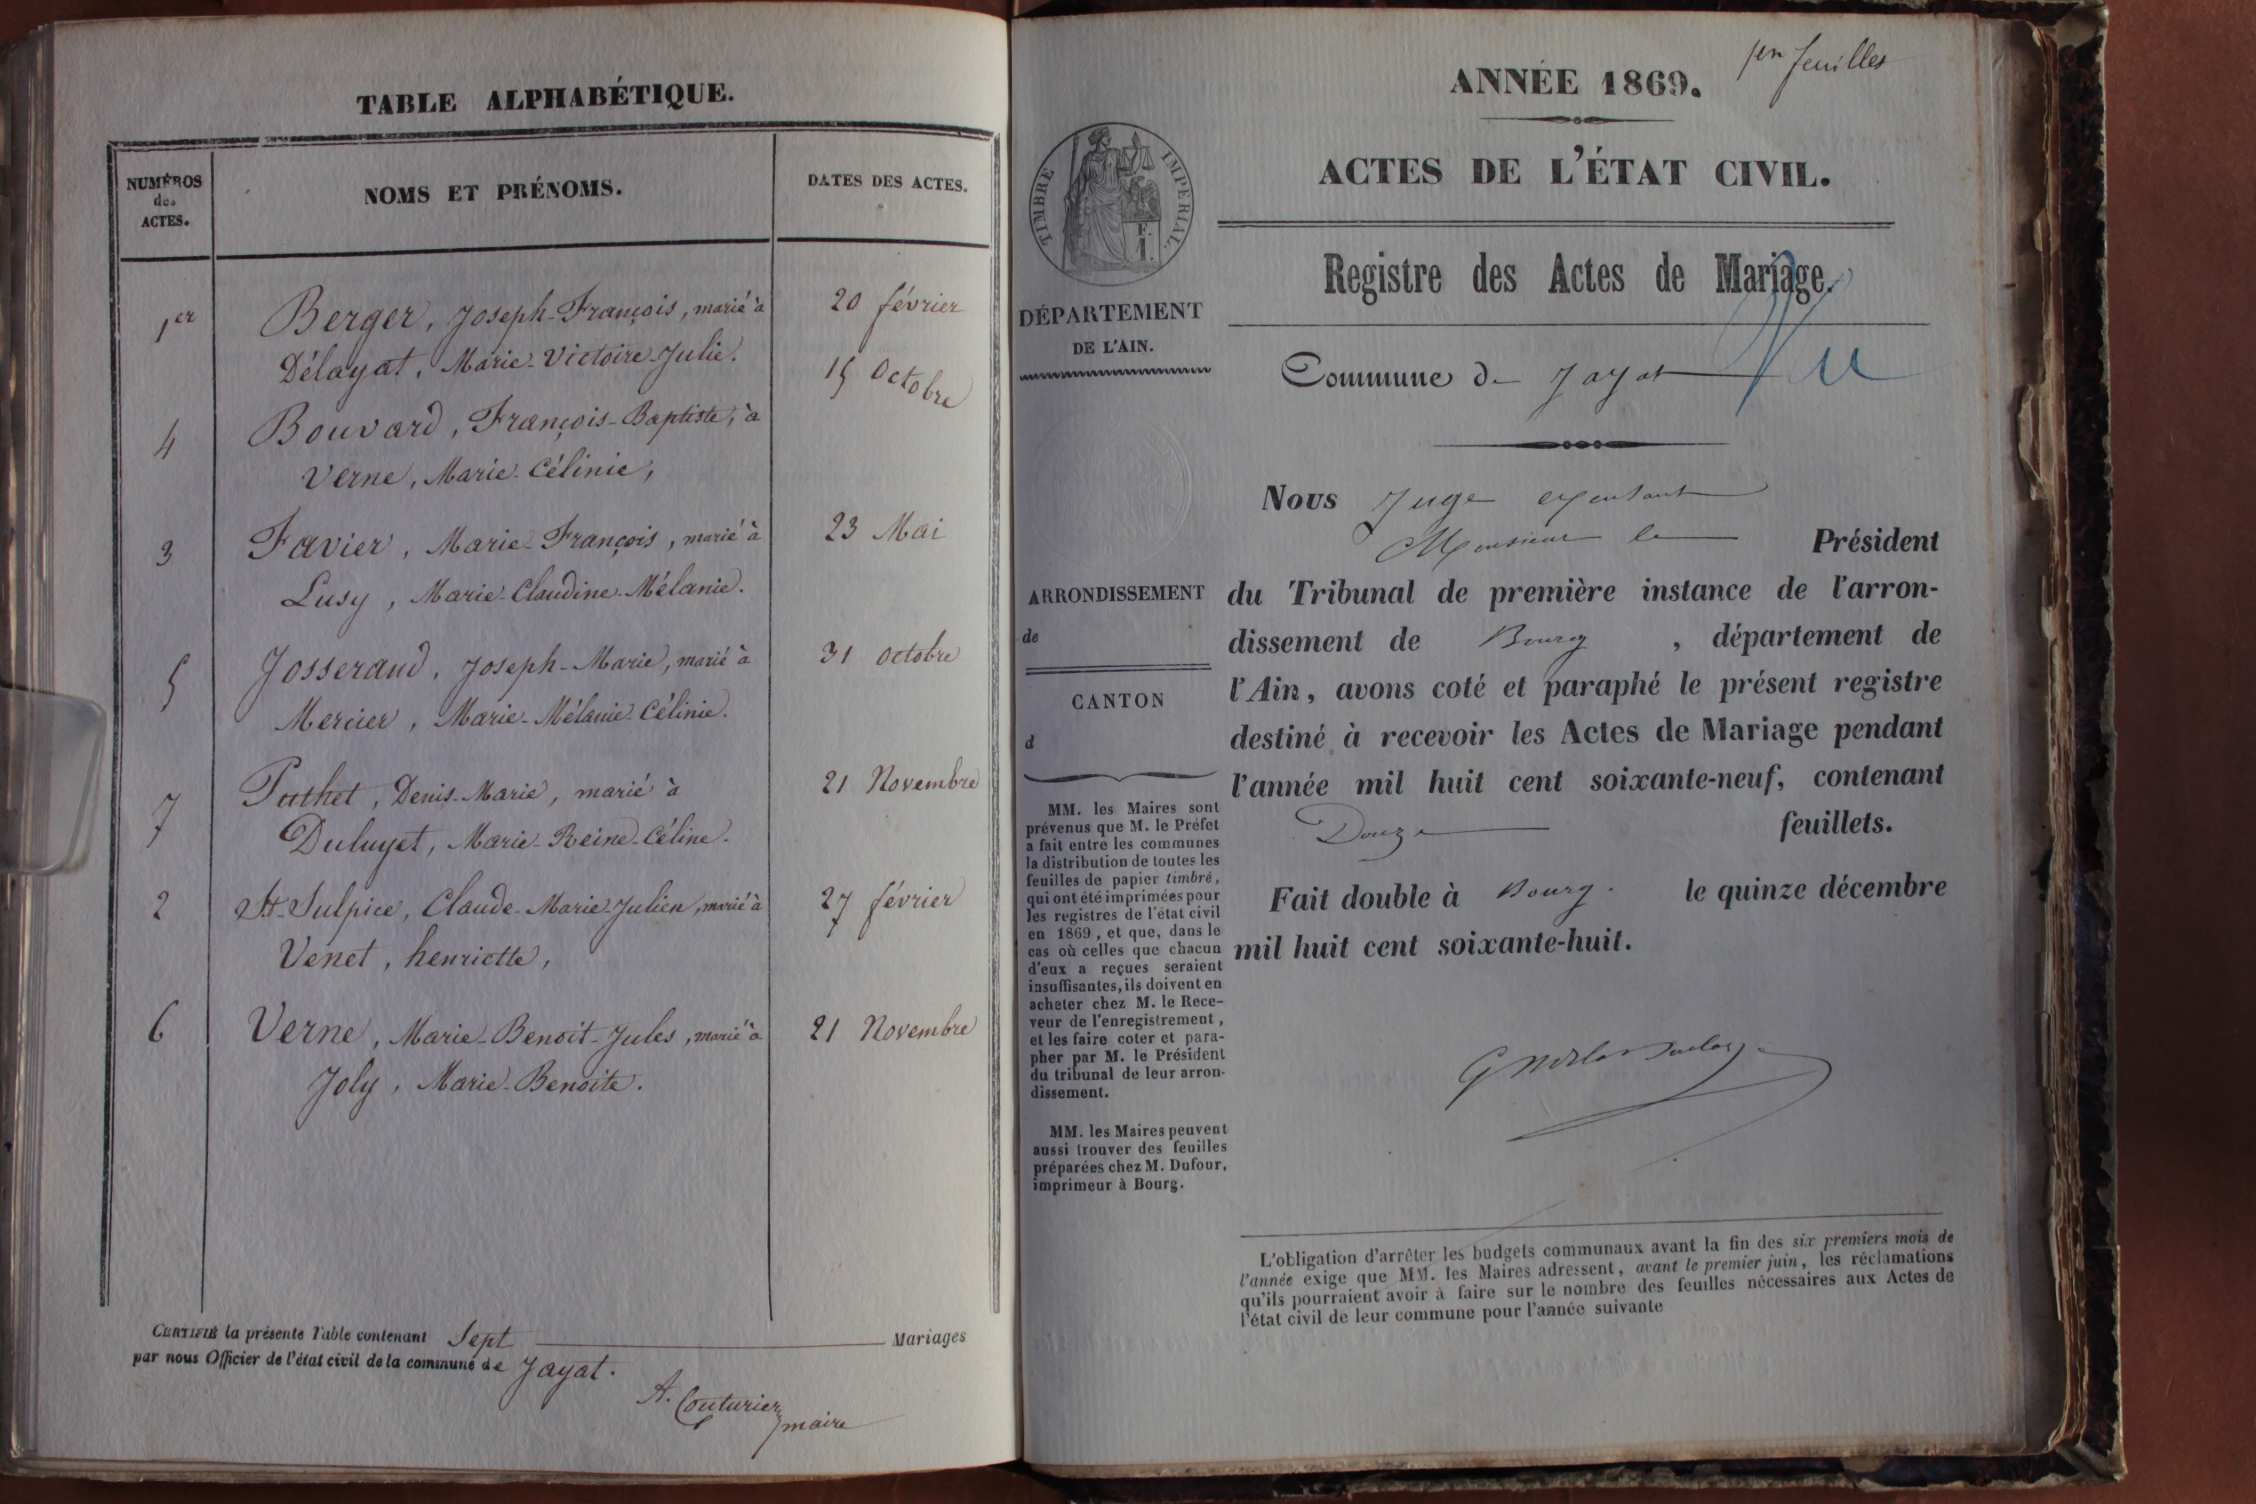 TABLE ALPHABÉTIQUE.
NUMÉROS
des
ACTES.
NOMS ET PRÉNOMS.
DATES DES ACTES.
1er Berger, Joseph-François, marié à 20 février
Délayat, Marie-Victoire-Julie.
4 Bouvard, François-Baptiste, à 15 Octobre
Verne, Marie-Célinie,
3 Favier, Marie-François, marié à 23 Mai
Lusy, Marie-Claudine-Mélanie.
5 Josserand, Joseph-Marie, marié à 31 octobre
Mercier, Marie-Mélanie-Célinie.
7 Pathet, Denis-Marie, marié à 21 Novembre
Duluyet, Marie-Reine-Céline.
2 St-Sulpice, Claude-Marie-Julien, marié à 27 février
Venet, henriette,
6 Verne, Marie-Benoit-Jules, marié à 21 Novembre
Joly, Marie-Benoite.
CERTIFIÉ la présente Table contenant Sept Mariages
par nous Officier de l'état civil de la commune de Jayat.
A. Couturier
maire
feuilles
ANNÉE 1869.
ACTES DE L'ÉTAT CIVIL.
TIMBRE IMPÉRIAL.
F.
1.
Registre des Actes de Mariage.
DÉPARTEMENT
DE L'AIN.
Commune de Jayat
Vu
Nous Juge
Monsieur le Président
ARRONDISSEMENT
de
CANTON
d
du Tribunal de première instance de l'arron-
dissement de Bourg, département de
l'Ain, avons coté et paraphé le présent registre
destiné à recevoir les Actes de Mariage pendant
l'année mil huit cent soixante-neuf, contenant
Douze feuillets.
Fait double à Bourg. le quinze décembre
mil huit cent soixante-huit.
MM. les Maires sont
prévenus que M. le Préfet
a fait entre les communes
la distribution de toutes les
feuilles de papier timbré,
qui ont été imprimées pour
les registres de l'état civil
en 1869, et que, dans le
cas où celles que chacun
d'eux a reçues seraient
insuffisantes, ils doivent en
acheter chez M. le Rece-
veur de l'enregistrement,
et les faire coter et para-
pher par M. le Président
du tribunal de leur arron-
dissement.
MM. les Maires peuvent
aussi trouver des feuilles
préparées chez M. Dufour,
imprimeur à Bourg.
L'obligation d'arrêter les budgets communaux avant la fin des six premiers mois de
l'année exige que MM. les Maires adressent, avant le premier juin, les réclamations
qu'ils pourraient avoir à faire sur le nombre des feuilles nécessaires aux Actes de
l'état civil de leur commune pour l'année suivante